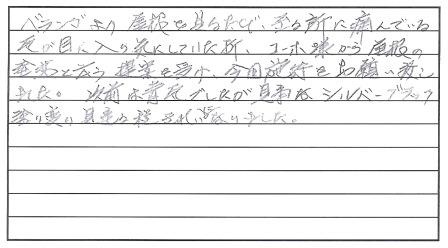 ベランダより屋根を見るたび、至る所に痛んでいる
瓦が目に入り気にしていた所、コーホ様から屋根の
塗装と云う提案を受け、今回施行をお願い致し
ました。以前は青瓦でしたが見事なシルバーブラック
塗り変り見事な